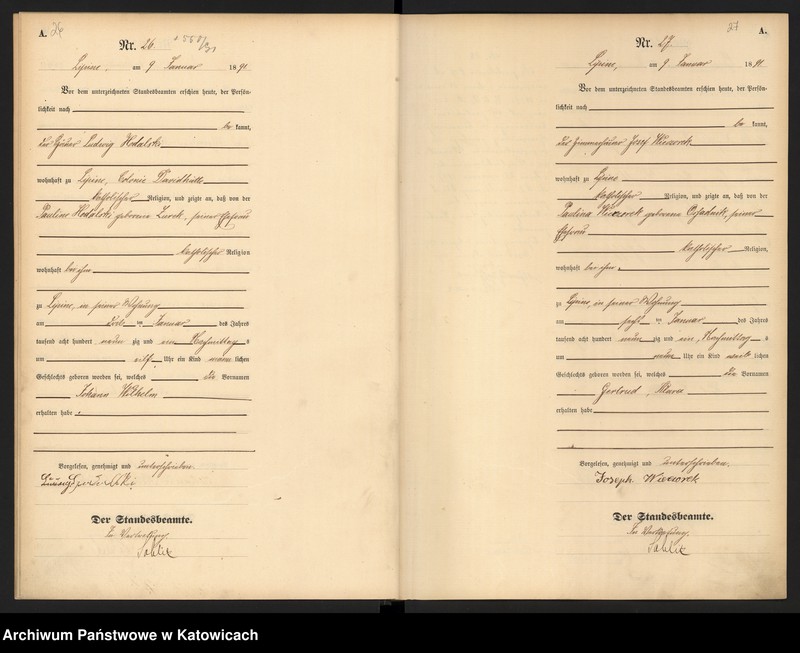 A. 26
Nr. 26.
Lipine, am 9 Januar 1891.
Vor dem unterzeichneten Standesbeamten erschien heute, der Persön-
lichkeit nach
be kannt,
der Ludwig
wohnhaft zu Lipine, Colonie Davidhütte
katholischer Religion, und zeigte an, daß von der
Pauline geborene Zurek, seiner Ehefrau
katholischer Religion
wohnhaft bei ihm
zu Lipine, in seiner Wohnung
am ten Januar des Jahres
tausend acht hundert neun zig und ein Nachmittag s
um elf Uhr ein Kind männ lichen
Geschlechts geboren worden sei, welches die Vornamen
Johann Wilhelm
erhalten habe.
Vorgelesen, genehmigt und unterschrieben.
Ludwig
Der Standesbeamte.
In Vertretung
27 A.
Nr. 27.
Lipine, am 9 Januar 1891.
Vor dem unterzeichneten Standesbeamten erschien heute, der Persön-
lichkeit nach
be kannt,
der Zimmerhäuer Josef Wieczorek
wohnhaft zu Lipine
katholischer Religion, und zeigte an, daß von der
Paulina Wieczorek geborene seiner
Ehefrau
katholischer Religion,
wohnhaft bei ihm
zu Lipine, in seiner Wohnung
am sechs ten Januar des Jahres
tausend acht hundert neun zig und ein, Nachmittag s
um Uhr ein Kind weib lichen
Geschlechts geboren worden sei, welches die Vornamen
Gertrud, Klara
erhalten habe
Vorgelesen, genehmigt und unterschrieben.
Joseph Wieczorek
Der Standesbeamte.
In Vertretung.
Archiwum Państwowe w Katowicach